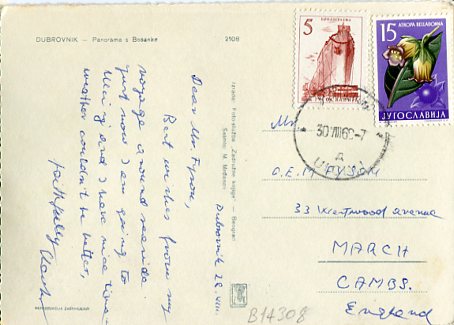 DUBROVNIK - Panorama s Bosanke
2108
Dubrovnik 28. VIII.
Dear Mr Fyson,
Best wishes from my
voyage around seaside.
just now I am going to
and I have nice time -
weather couldn't be better,
faithfully
Izrada: Foto-služba "Zadružne knjige" - Beograd
Snimio: M.
5
ЈУГОСЛАВИЈА
15
ATROPA BELLADONNA
ЈУГОСЛАВИЈА
30 VIII 60-7
Mr
O. E. M. FYSON
33 Wrentwood avenue
MARCH
CAMBS.
England
B14308